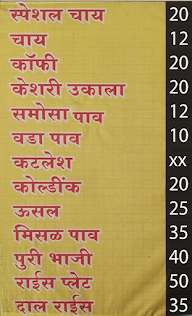 स्पेशल चाय 20
चाय 12
कॉफी 20
केशरी उकाला 20
समोसा पाव 12
वडा पाव 10
कटलेश xx
कोल्डींक 20
ऊसल 25
मिसळ पाव 35
पुरी भाजी 40
राईस प्लेट 50
दाल राईस 35